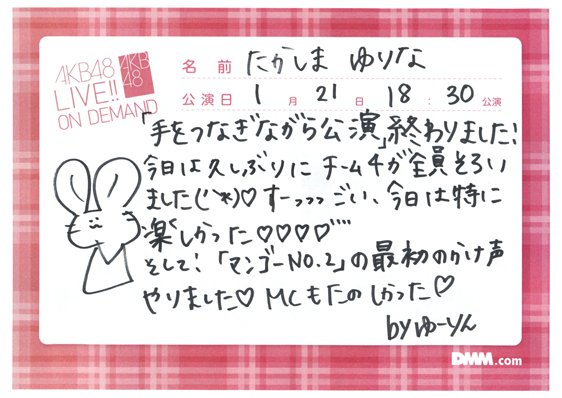 AKB48
LIVE!!
ON DEMAND
AKB
48
名前 たかしま ゆりな
公演日 1 月 21 日 18 : 30 公演
「手をつなぎながら公演」終わりました!
今日は久しぶりに チーム4が全員そろい
ました(^*)♡ すーっっっごい、今日は特に
楽しかった♡♡♡♡
そして!「マンゴーNO.2」の最初のかけ声
やりました♡ MCもたのしかった♡
by ゆーりん
DMM.com